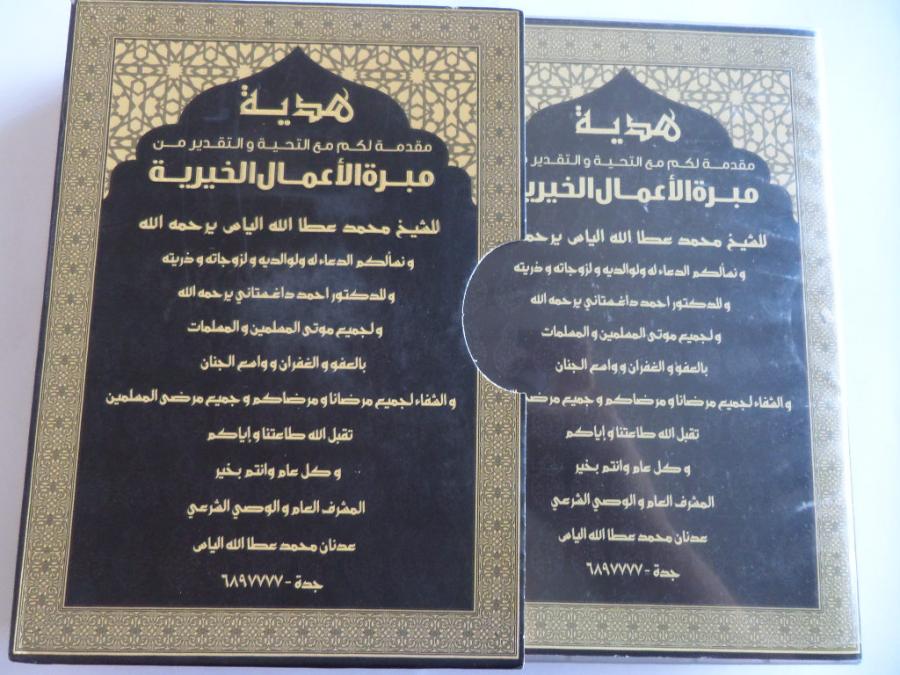 هدية
مقدمة لكم مع التحية و التقدير من
مبرة الأعمال الخيرية
للشيخ محمد عطا الله الياس يرحمه الله
و نسألكم الدعاء له ولوالديه و لزوجاته و ذريته
و للدكتور احمد داغستاني يرحمه الله
و لجميع موتى المسلمين و المسلمات
بالعفو و الغفران و واسع الجنان
و الشفاء لجميع مرضانا و مرضاكم و جميع مرضى المسلمين
تقبل الله طاعتنا و إياكم
و كل عام وانتم بخير
المشرف العام و الوصي الشرعي
عدنان محمد عطا الله الياس
جدة - ٦٨٩٧٧٧٧
هدية
مقدمة لكم مع التحية و التقدير
مبرة الأعمال
للشيخ محمد عطا الله الياس
و نسألكم الدعاء له ولوالديه و لزوجاته و ذريته
و للدكتور احمد داغستاني يرحمه الله
و لجميع موتى المسلمين و المسلمات
بالعفو و الغفران و واسع الجنان
و الشفاء لجميع مرضانا و مرضاكم و جميع
تقبل الله طاعتنا و إياكم
و كل عام وانتم بخير
المشرف العام و الوصي الشرعي
عدنان محمد عطا الله الياس
جدة - ٦٨٩٧٧٧٧